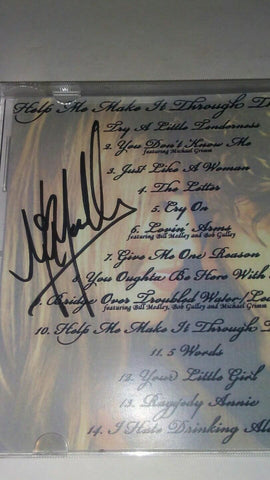 Help Me Make It Through T
Try A Little Tenderness
2. You Don't Know Me
featuring Michael Grimm
3. Just Like A Woman
4. The Letter
5. Cry On
6. Lovin' Arms
featuring Bill Medley and Bob Gulley
7. Give Me One Reason
8. You Oughta Be Here With
9. Bridge Over Troubled Water/Lea
featuring Bill Medley, Bob Gulley and Michael Grimm
10. Help Me Make It Through T
11. 5 Words
12. Your Little Girl
13. Raggedy Annie
14. I Hate Drinking Al